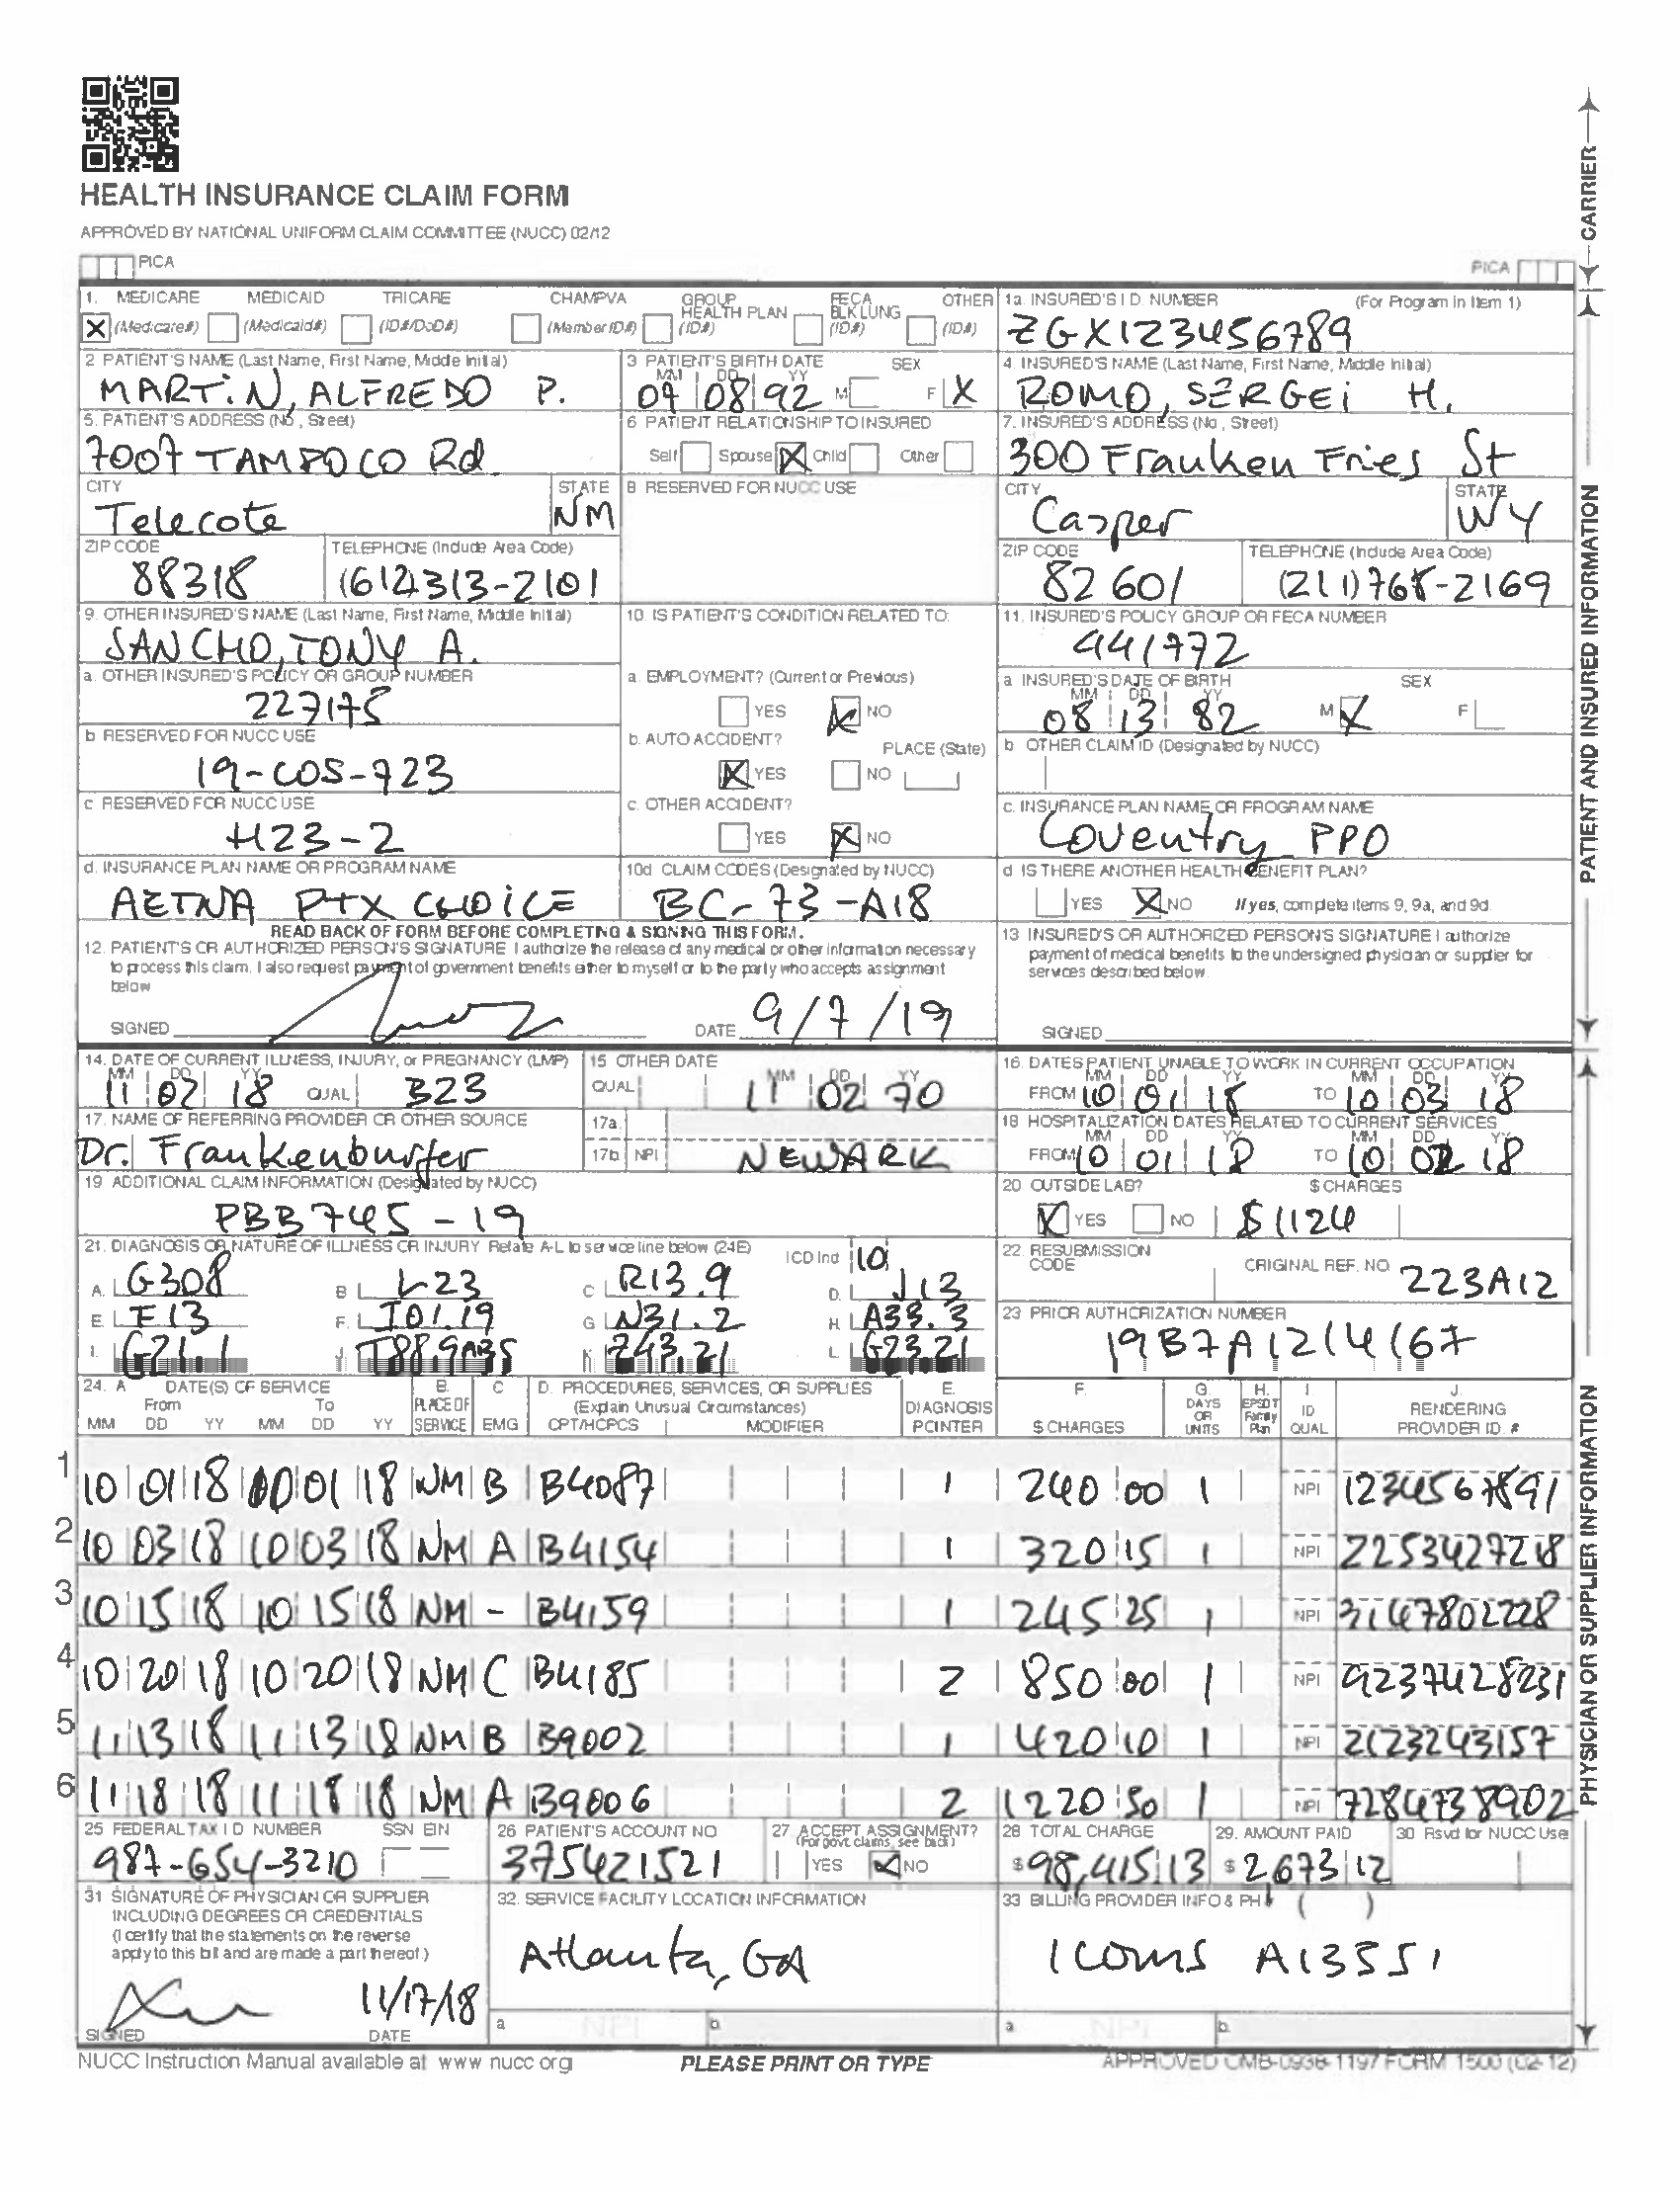 HEALTH INSURANCE CLAIM FORM
APPROVED BY NATIONAL UNIFORM CLAIM COMMITTEE (NUCC) 02/12
PICA
PICA
CARRIER
1. MEDICARE MEDICAID TRICARE CHAMPVA GROUP HEALTH PLAN FECA BLK LUNG OTHER
X (Medicare#) (Medicaid#) (ID#/DoD#) (Member ID#) (ID#) (ID#) (ID#)
1a. INSURED'S I.D. NUMBER (For Program in Item 1)
ZGX123456789
2 PATIENT'S NAME (Last Name, First Name, Middle Initial)
MARTiN, ALFREDO P.
3 PATIENT'S BIRTH DATE SEX
MM DD YY
07 08 92 M F X
4. INSURED'S NAME (Last Name, First Name, Middle Initial)
ROMO, SERGEi H.
5. PATIENT'S ADDRESS (No, Street)
7007 TAMPOCO Rd
6 PATIENT RELATIONSHIP TO INSURED
Self Spouse X Child Other
7. INSURED'S ADDRESS (No, Street)
300 Franken Fries St
CITY STATE
Telecote NM
8 RESERVED FOR NUCC USE
CITY STATE
Casper WY
ZIP CODE TELEPHONE (Include Area Code)
88318 (612)313-2101
ZIP CODE TELEPHONE (Include Area Code)
82601 (211)768-2169
9. OTHER INSURED'S NAME (Last Name, First Name, Middle Initial)
SANCHO, TONY A.
10. IS PATIENT'S CONDITION RELATED TO:
11. INSURED'S POLICY GROUP OR FECA NUMBER
441772
a. OTHER INSURED'S POLICY OR GROUP NUMBER
227175
a. EMPLOYMENT? (Current or Previous)
YES X NO
a INSURED'S DATE OF BIRTH SEX
MM DD YY
08 13 82 M X F
b RESERVED FOR NUCC USE
19-COS-723
b. AUTO ACCIDENT? PLACE (State)
X YES NO
b OTHER CLAIM ID (Designated by NUCC)
c RESERVED FOR NUCC USE
H23-2
c. OTHER ACCIDENT?
YES X NO
c. INSURANCE PLAN NAME OR PROGRAM NAME
Coventry PPO
d. INSURANCE PLAN NAME OR PROGRAM NAME
AETNA PTX CHOiCE
10d CLAIM CODES (Designated by NUCC)
BC-73-A18
d IS THERE ANOTHER HEALTH BENEFIT PLAN?
YES X NO If yes, complete items 9, 9a, and 9d.
READ BACK OF FORM BEFORE COMPLETING & SIGNING THIS FORM.
12. PATIENT'S OR AUTHORIZED PERSON'S SIGNATURE I authorize the release of any medical or other information necessary
to process this claim. I also request payment of government benefits either to myself or to the party who accepts assignment
below
SIGNED DATE 9/7/19
13 INSURED'S OR AUTHORIZED PERSON'S SIGNATURE I authorize
payment of medical benefits to the undersigned physician or supplier for
services described below.
SIGNED
PATIENT AND INSURED INFORMATION
14. DATE OF CURRENT ILLNESS, INJURY, or PREGNANCY (LMP)
MM DD YY
11 02 18 QUAL B23
15 OTHER DATE
QUAL MM DD YY
11 02 70
16. DATES PATIENT UNABLE TO WORK IN CURRENT OCCUPATION
MM DD YY MM DD YY
FROM 10 01 18 TO 10 03 18
17. NAME OF REFERRING PROVIDER OR OTHER SOURCE
Dr. Frankenburger
17a.
17b NPI NEWARK
18 HOSPITALIZATION DATES RELATED TO CURRENT SERVICES
MM DD YY MM DD YY
FROM 10 01 18 TO 10 02 18
19 ADDITIONAL CLAIM INFORMATION (Designated by NUCC)
PBB745-19
20 OUTSIDE LAB? $ CHARGES
X YES NO $1124
21. DIAGNOSIS OR NATURE OF ILLNESS OR INJURY Relate A-L to service line below (24E) ICD Ind 10
A. G308 B L23 C R13.9 D. J13
E. F13 F. J01.19 G N31.2 H. A33.3
I. G21.1 J. T889AB5 K Z43.21 L. G23.21
22. RESUBMISSION CODE ORIGINAL REF. NO.
223A12
23 PRIOR AUTHORIZATION NUMBER
19B7A1214167
24. A DATE(S) OF SERVICE B. PLACE OF SERVICE C EMG D. PROCEDURES, SERVICES, OR SUPPLIES E. DIAGNOSIS POINTER F. $ CHARGES G. DAYS OR UNITS H. EPSDT Family Plan I ID QUAL J. RENDERING PROVIDER ID. #
From To (Explain Unusual Circumstances)
MM DD YY MM DD YY CPT/HCPCS MODIFIER
1 10 01 18 10 01 18 NM B B4087 1 240 00 1 NPI 1234567891
2 10 03 18 10 03 18 NM A B4154 1 320 15 1 NPI 2253427218
3 10 15 18 10 15 18 NM - B4159 1 245 25 1 NPI 3147802228
4 10 20 18 10 20 18 NM C B4185 2 850 00 1 NPI 9237428231
5 11 13 18 11 13 18 NM B B9002 1 420 10 1 NPI 2123243157
6 11 18 18 11 18 18 NM A B9006 2 1220 50 1 NPI 7284738902
25 FEDERAL TAX I D NUMBER SSN EIN
987-654-3210
26 PATIENT'S ACCOUNT NO
375421521
27 ACCEPT ASSIGNMENT?
(For govt. claims, see back)
YES X NO
28 TOTAL CHARGE
$ 98,415 13
29. AMOUNT PAID
$ 2,673 12
30 Rsvd for NUCC Use
31 SIGNATURE OF PHYSICIAN OR SUPPLIER
INCLUDING DEGREES OR CREDENTIALS
(I certify that the statements on the reverse
apply to this bill and are made a part thereof.)
11/17/18
SIGNED DATE
32. SERVICE FACILITY LOCATION INFORMATION
Atlanta, GA
a NPI b.
33 BILLING PROVIDER INFO & PH # ( )
1coms A13551
a NPI b.
PHYSICIAN OR SUPPLIER INFORMATION
NUCC Instruction Manual available at www nucc org
PLEASE PRINT OR TYPE
APPROVED OMB-0938-1197 FORM 1500 (02-12)